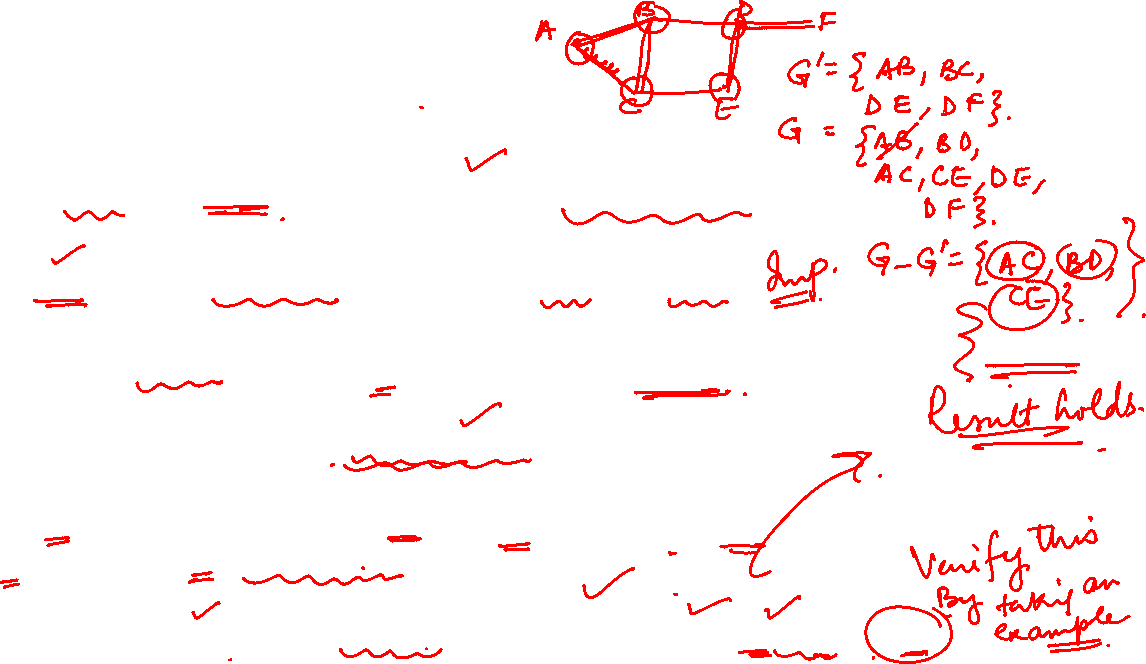 A B D F
C E
G' = { AB, BC,
DE, DF}.
G = {AB, BD,
AC, CE, DE,
DF}.
Imp. G-G' = {AC, BD,
CE}.
Result holds.
Verify this
By taking an
example.